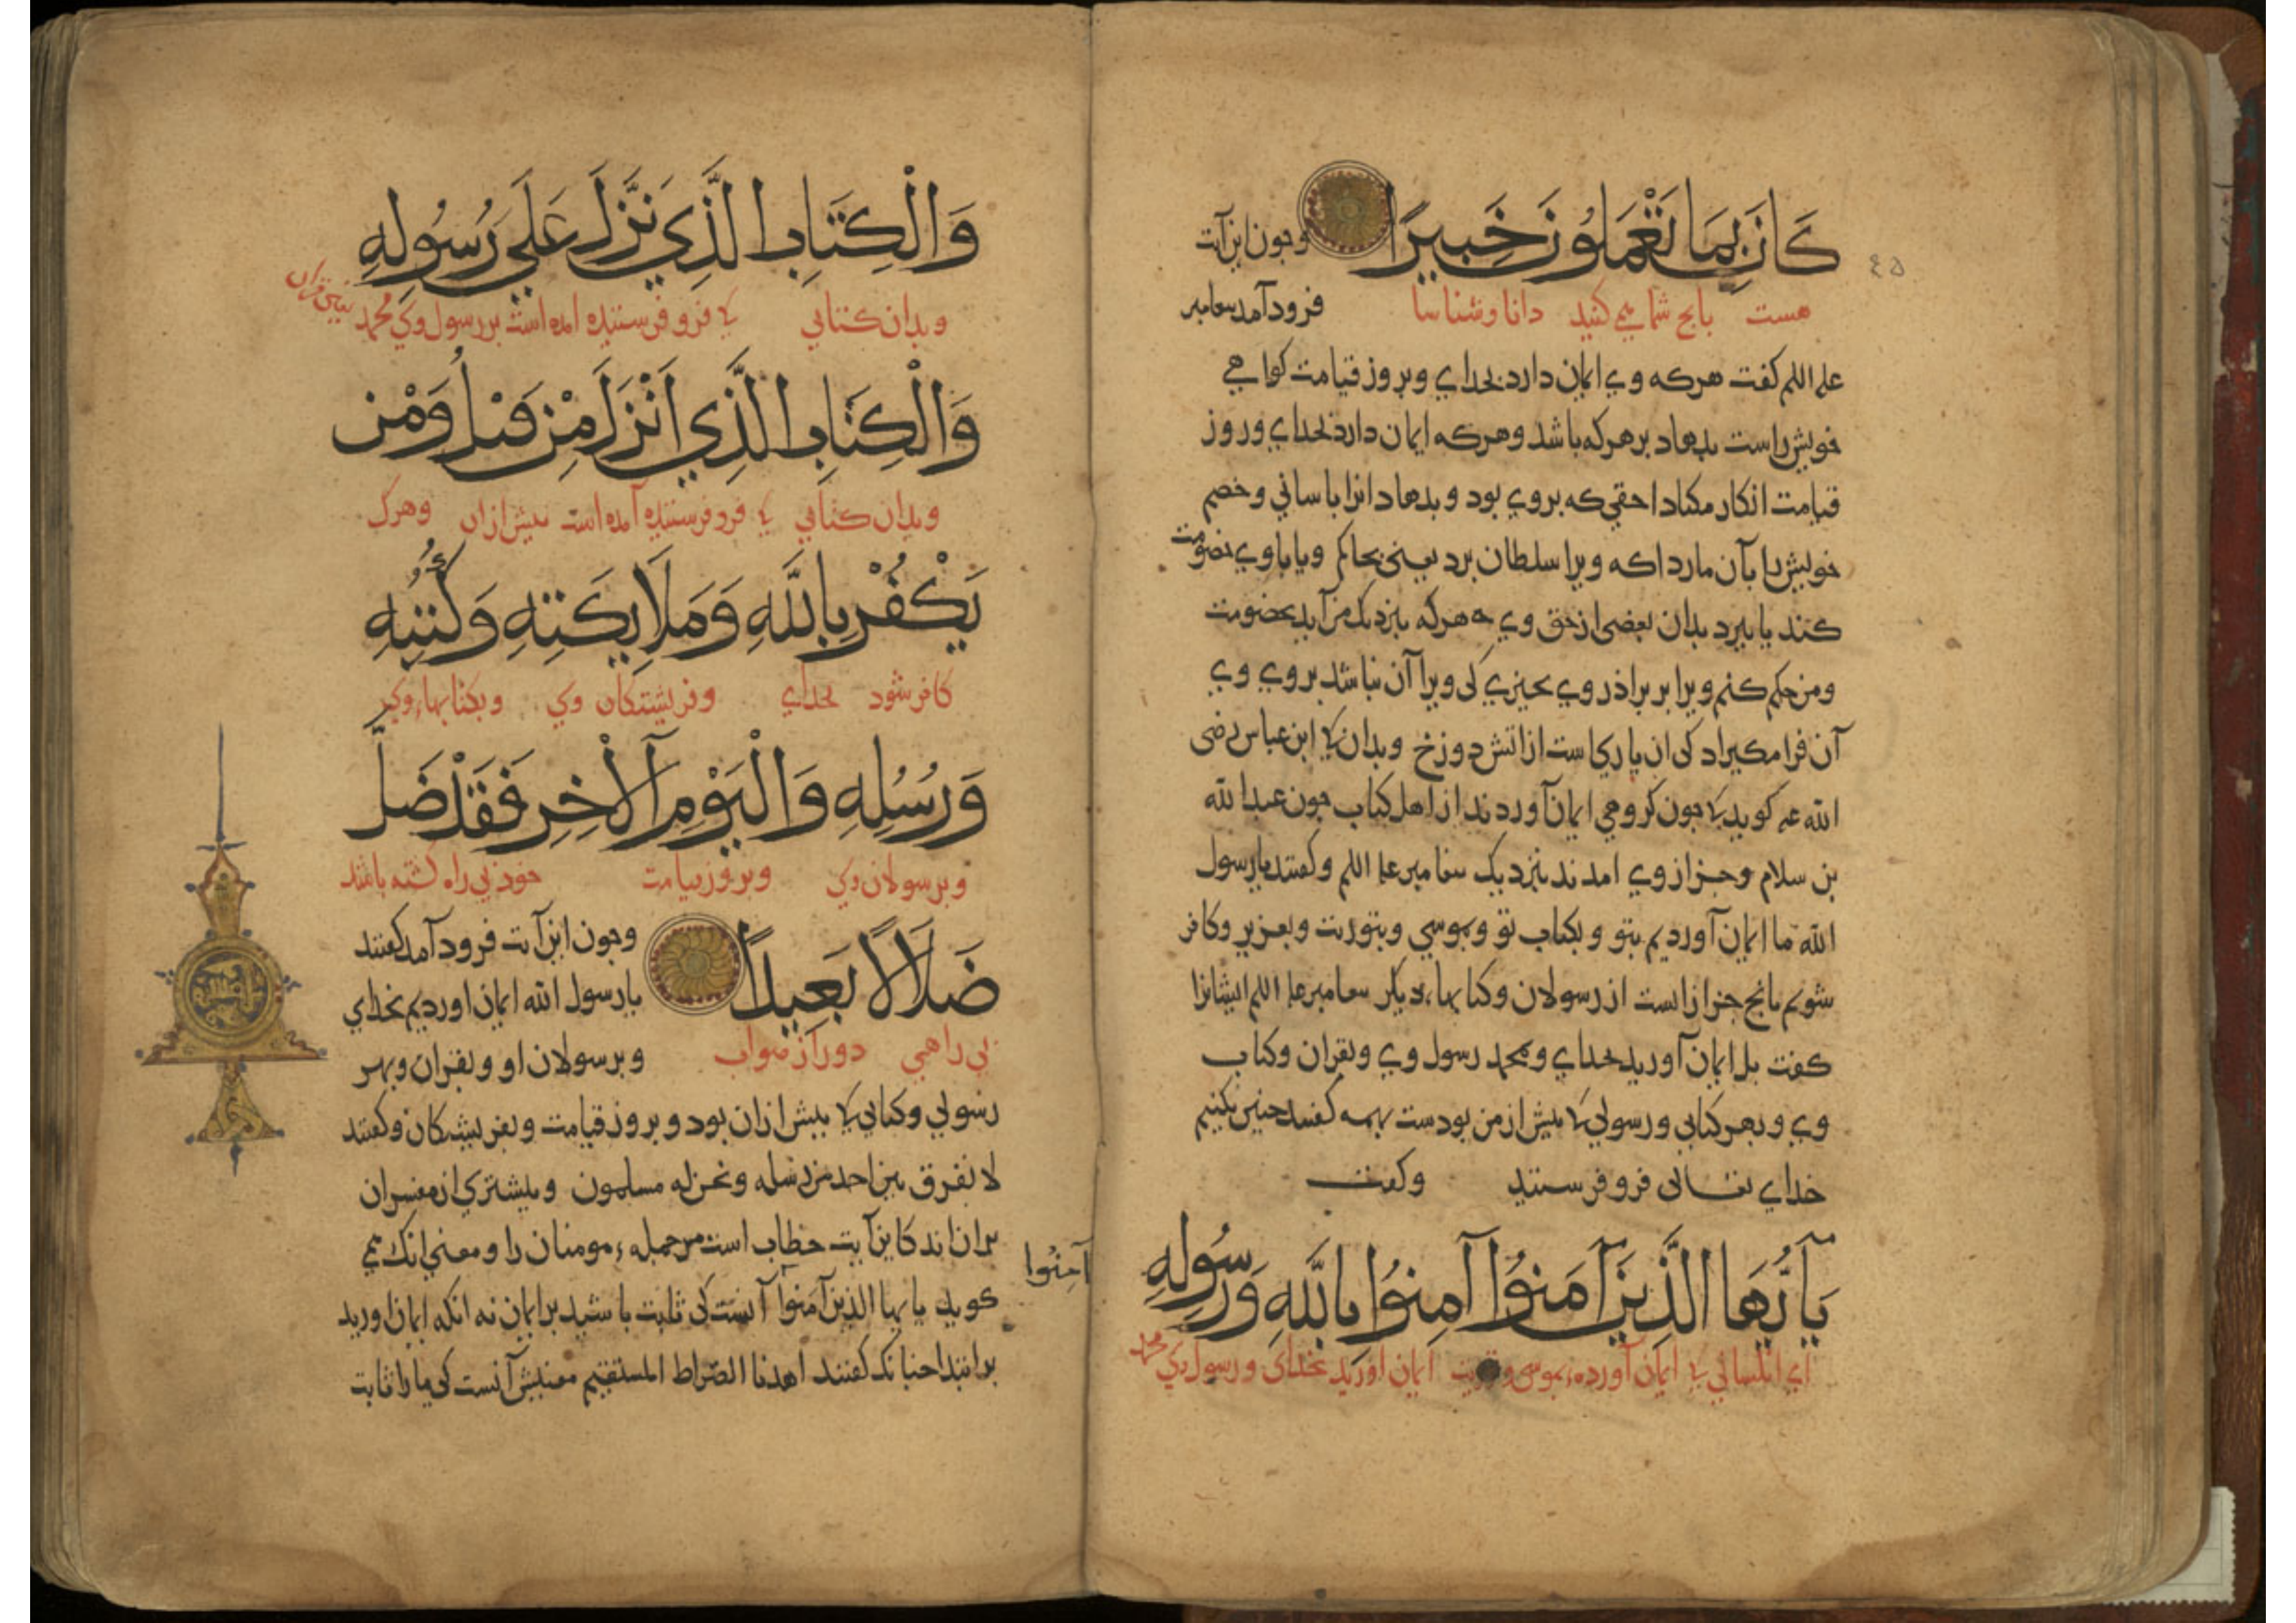 كَانَ بِمَا تَعْمَلُونَ خَبِيرًا وجون اين آيت
هست بانج شما مي كنيد دانا وشناسا
فرود آمد
علم اللم كفت هركه وي ايمان دارد بخداي وبروز قيامت كواهي
خويش راست بدهاد بر هركه باشد وهركه ايمان دارد بخداي وروز
قيامت انكار مكناد احقي كه بروي بود وبدهاد انرا باساني وخصم
خويش را بآن مارد اكه ويرا سلطان برد يعني بحاكم ويا باوي خصومت
كند يا ببرد بدان بعضي از حق وي هركه بنزديك من آيد بخصومت
ومن حكم كنم ويرا بر براذر وي بجيزي كي ويرا آن نباشد بروي وي
آن فرا مكيراد كي ان پاركاست از اتش دوزخ وبدان ابن عباس رضى
الله عه كويد جون كروهي ايمان آوردند از اهل كتاب جون عبدالله
بن سلام وجزاز وي امدند بنزديك علم اللم وكفتند يارسول
الله ما ايمان آورديم بتو وبكتاب تو وبموسي وبتوريت وبعزير وكافر
شويم بانج جزازانست از رسولان وكتابهاء ديكر علم اللم ايشانرا
كفت بل ايمان آوريد بخداي وبمحمد رسول وي وبقران وكتاب
وي وبهر كتابي ورسولي بيش ازمن بودست همه كفتند جنين نكنيم
خداي تعالى فرو فرستيد وكفت
يَآ أَيُّهَا الَّذِينَ آمَنُوا آمِنُوا بِاللَّهِ وَرَسُولِهِ
اي ايمان آورده بموسى ايمان اوريد بخداى ورسول وي محمد
آمِنُوا
وَالْكِتَابِ الَّذِي نَزَّلَ عَلَى رَسُولِهِ
وبدان كتابي فرو فرستيده امده است بر رسول وكي محمد يعني قران
وَالْكِتَابِ الَّذِي أَنْزَلَ مِنْ قَبْلُ وَمَنْ
وبدان كتابي فرو فرستيده آمده است بيش ازان وهرك
يَكْفُرْ بِاللَّهِ وَمَلَايِكَتِهِ وَكُتُبِهِ
كافر شود بخداي وفريشتكان وي وبكتابهاء وي
وَرُسُلِهِ وَالْيَوْمِ الْآخِرِ فَقَدْ ضَلَّ
وبرسولان وي وبروز قيامت خوذ بي راه كشته باشد
ضَلَالًا بَعِيدًا وجون اين آيت فرود آمد كفتند
يارسول الله ايمان اورديم بخداي
بي راهي دور از صواب وبرسولان او وبقران وبهر
رسولي وكتابي بيش ازان بود وبروز قيامت وبفريشتكان وكفتند
لا نفرق بين احد من رسله ونحن له مسلمون وبيشتري از مفسران
بران اند كاين آيت خطاب است مر جمله مومنان را ومعني انك مي
كويد يا ايها الذين آمنوا آنست كي ثابت باشيد بر ايمان نه انكه ايمان اوريد
برابتدا جنانك كفتند اهدنا الصراط المستقيم معنيش آنست كي ما را ثابت